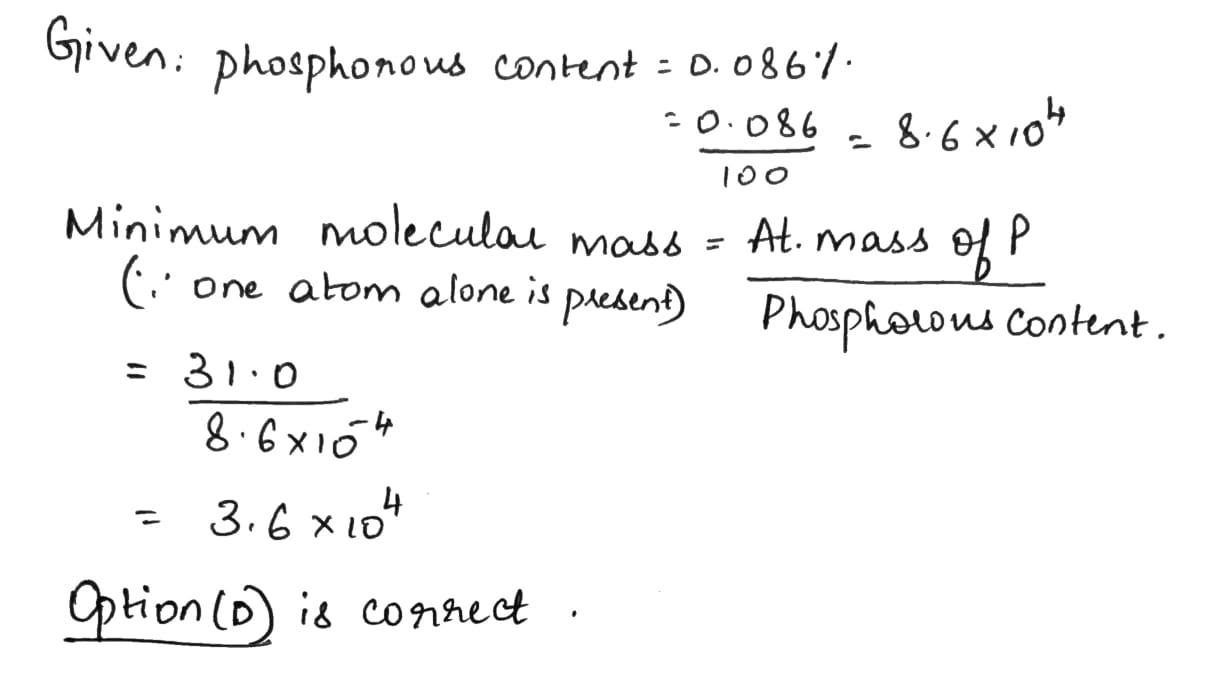 Given: phosphorous content = 0.086%.
= 0.086/100 = 8.6 × 10⁴
Minimum molecular mass = At. mass of P / Phosphorous content.
(∵ one atom alone is present)
= 31.0 / 8.6×10⁻⁴
= 3.6 × 10⁴
Option (D) is correct.